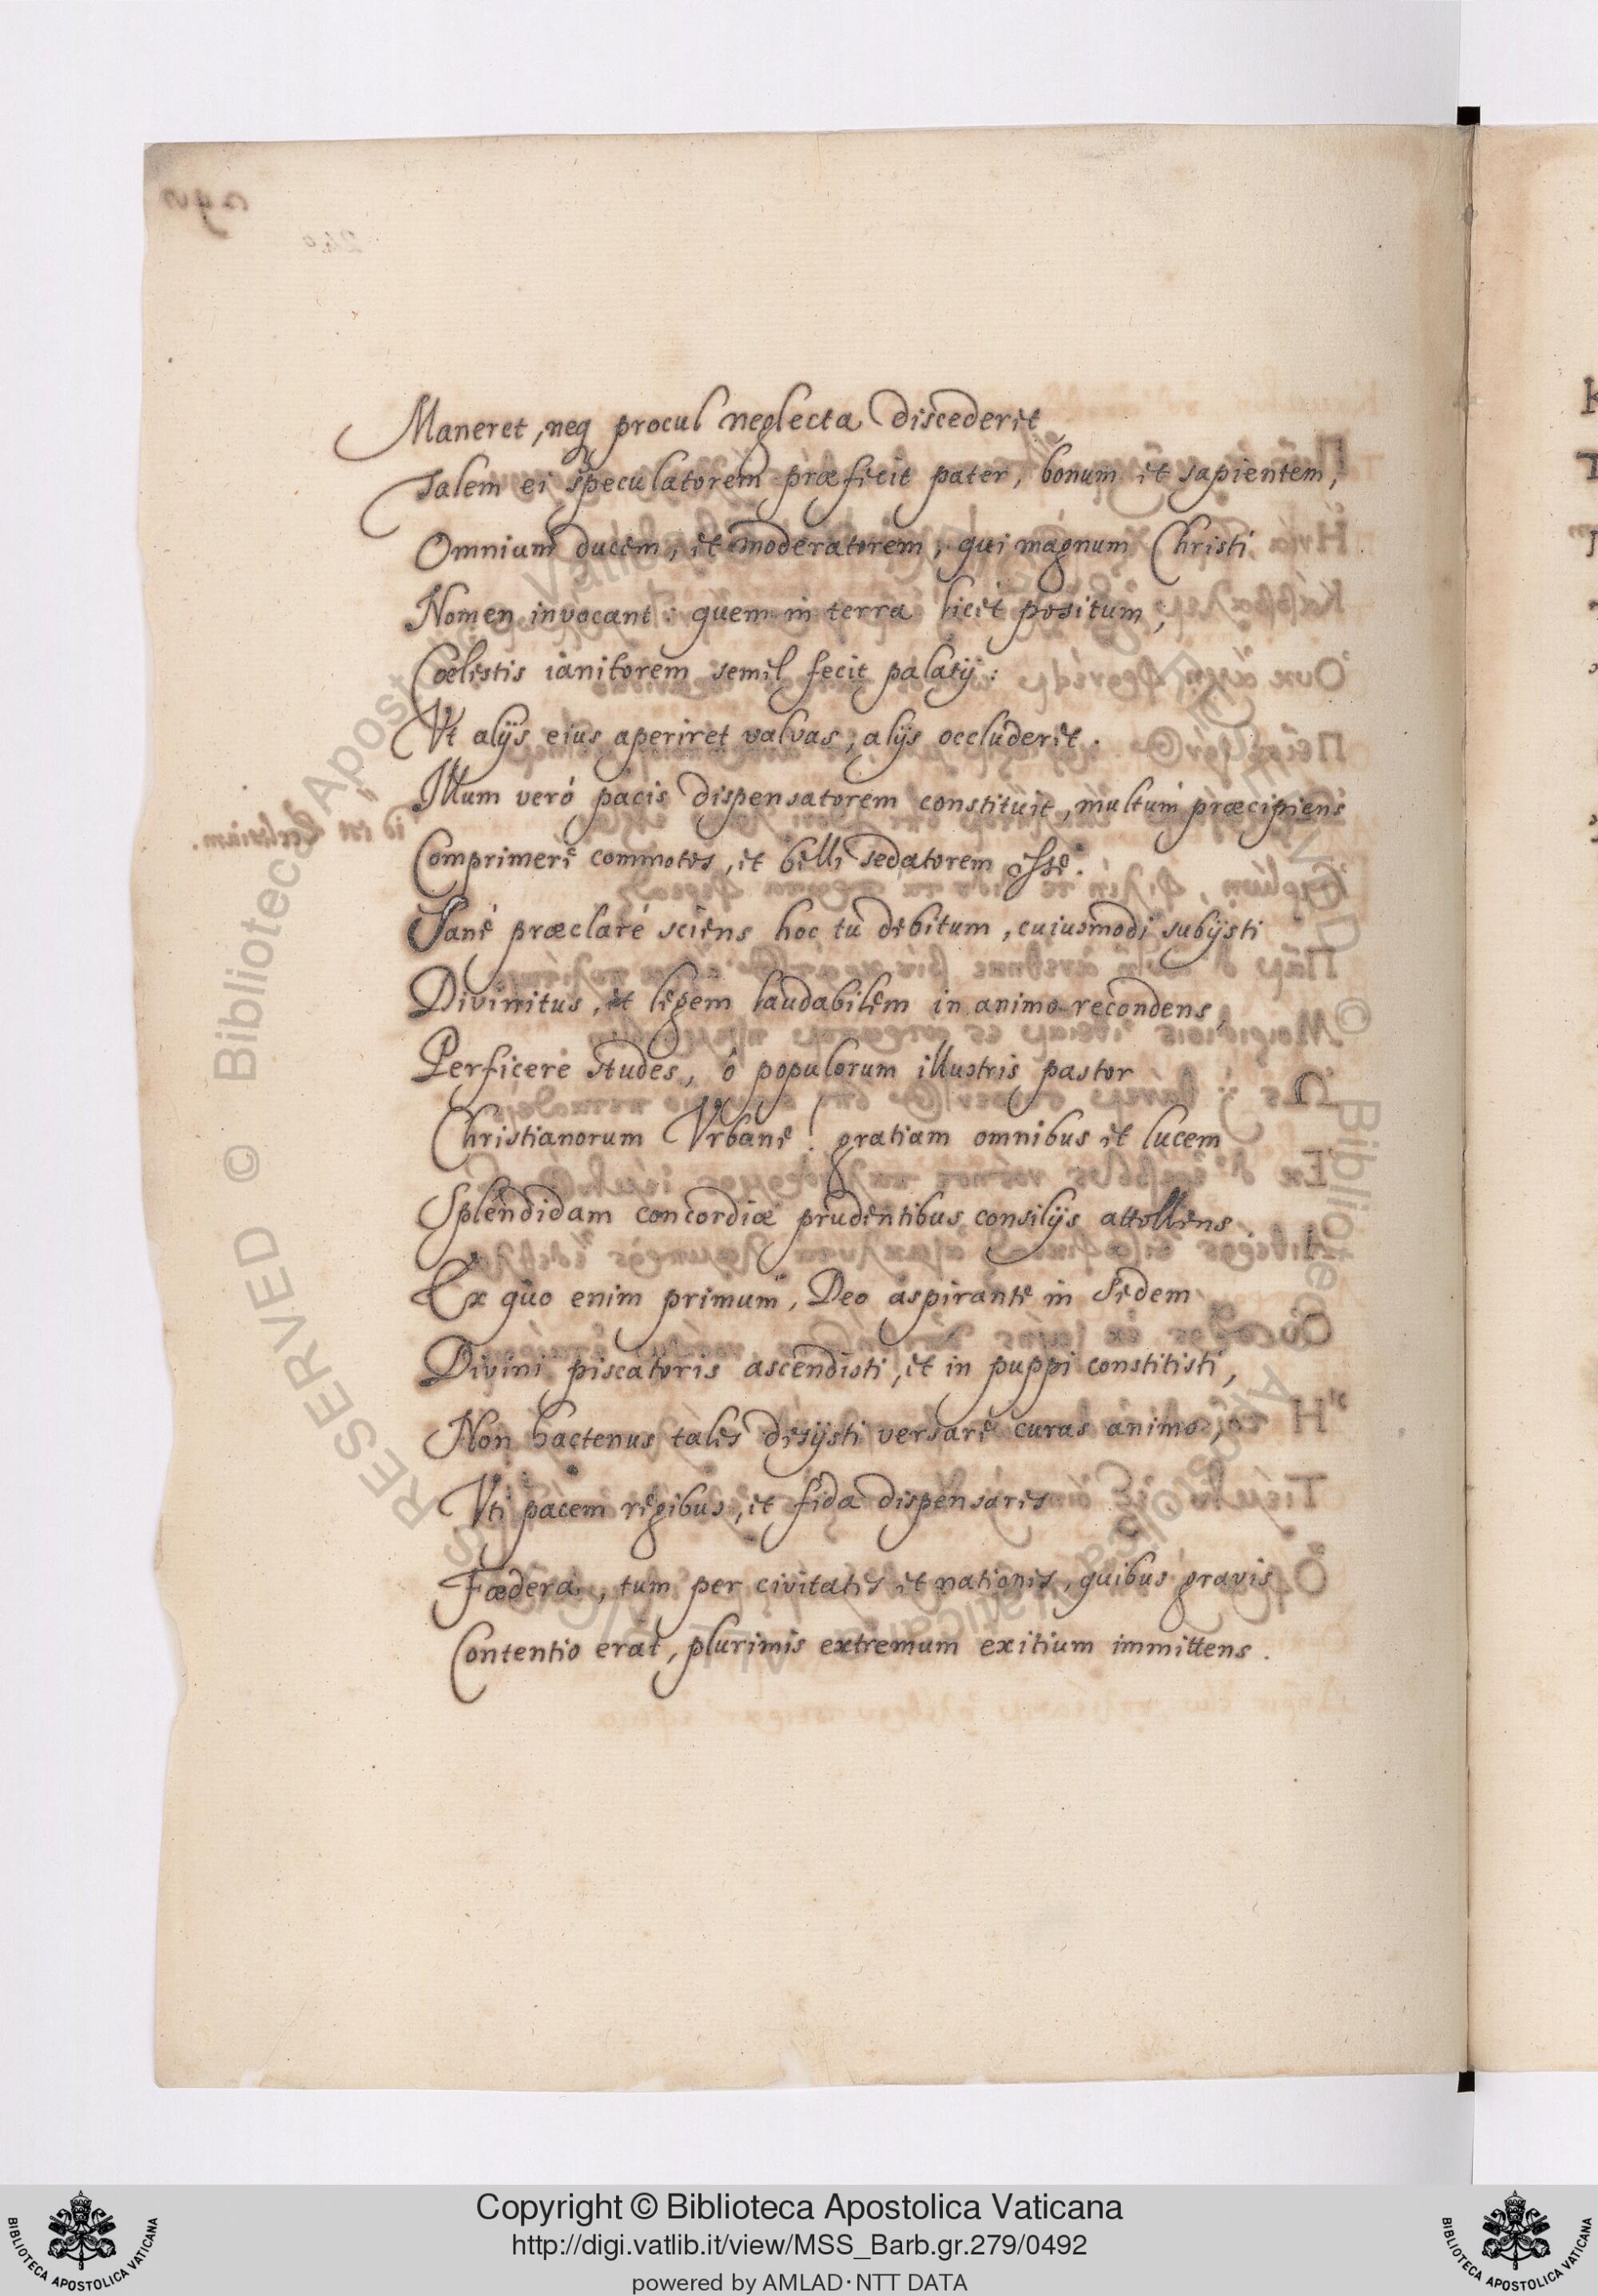 Maneret, neq procul neglecta discederet
Talem ei speculatorem præfecit pater, bonum et sapientem,
Omnium ducem, et moderatorem, qui magnum Christi
Nomen invocant: quem in terra licet positum,
Cœlestis ianitorem semel fecit palatij:
Vt alijs eius aperiret valvas, alijs occluderet.
Illum verò pacis dispensatorem constituit, multum præcipiens
Comprimere commotos, et belli sedatorem esse.
Sanè præclarè sciens hoc tu debitum, cuiusmodi subijsti
Divinitus, et legem laudabilem in animo recondens,
Perficere studes, ô populorum illustris pastor
Christianorum Vrbane! gratiam omnibus et lucem
Splendidam concordiæ prudentibus consilijs attollens
Ex quo enim primum, Deo aspirante in sedem
Divini piscatoris ascendisti, et in puppi constitisti,
Non hactenus tales desijsti versare curas animo,
Vti pacem regibus, et fida dispensares
Fœdera, tum per civitates et nationes, quibus gravis
Contentio erat, plurimis extremum exitium immittens.
Copyright © Biblioteca Apostolica Vaticana
http://digi.vatlib.it/view/MSS_Barb.gr.279/0492
powered by AMLAD·NTT DATA
BIBLIOTECA APOSTOLICA VATICANA
BIBLIOTECA APOSTOLICA VATICANA